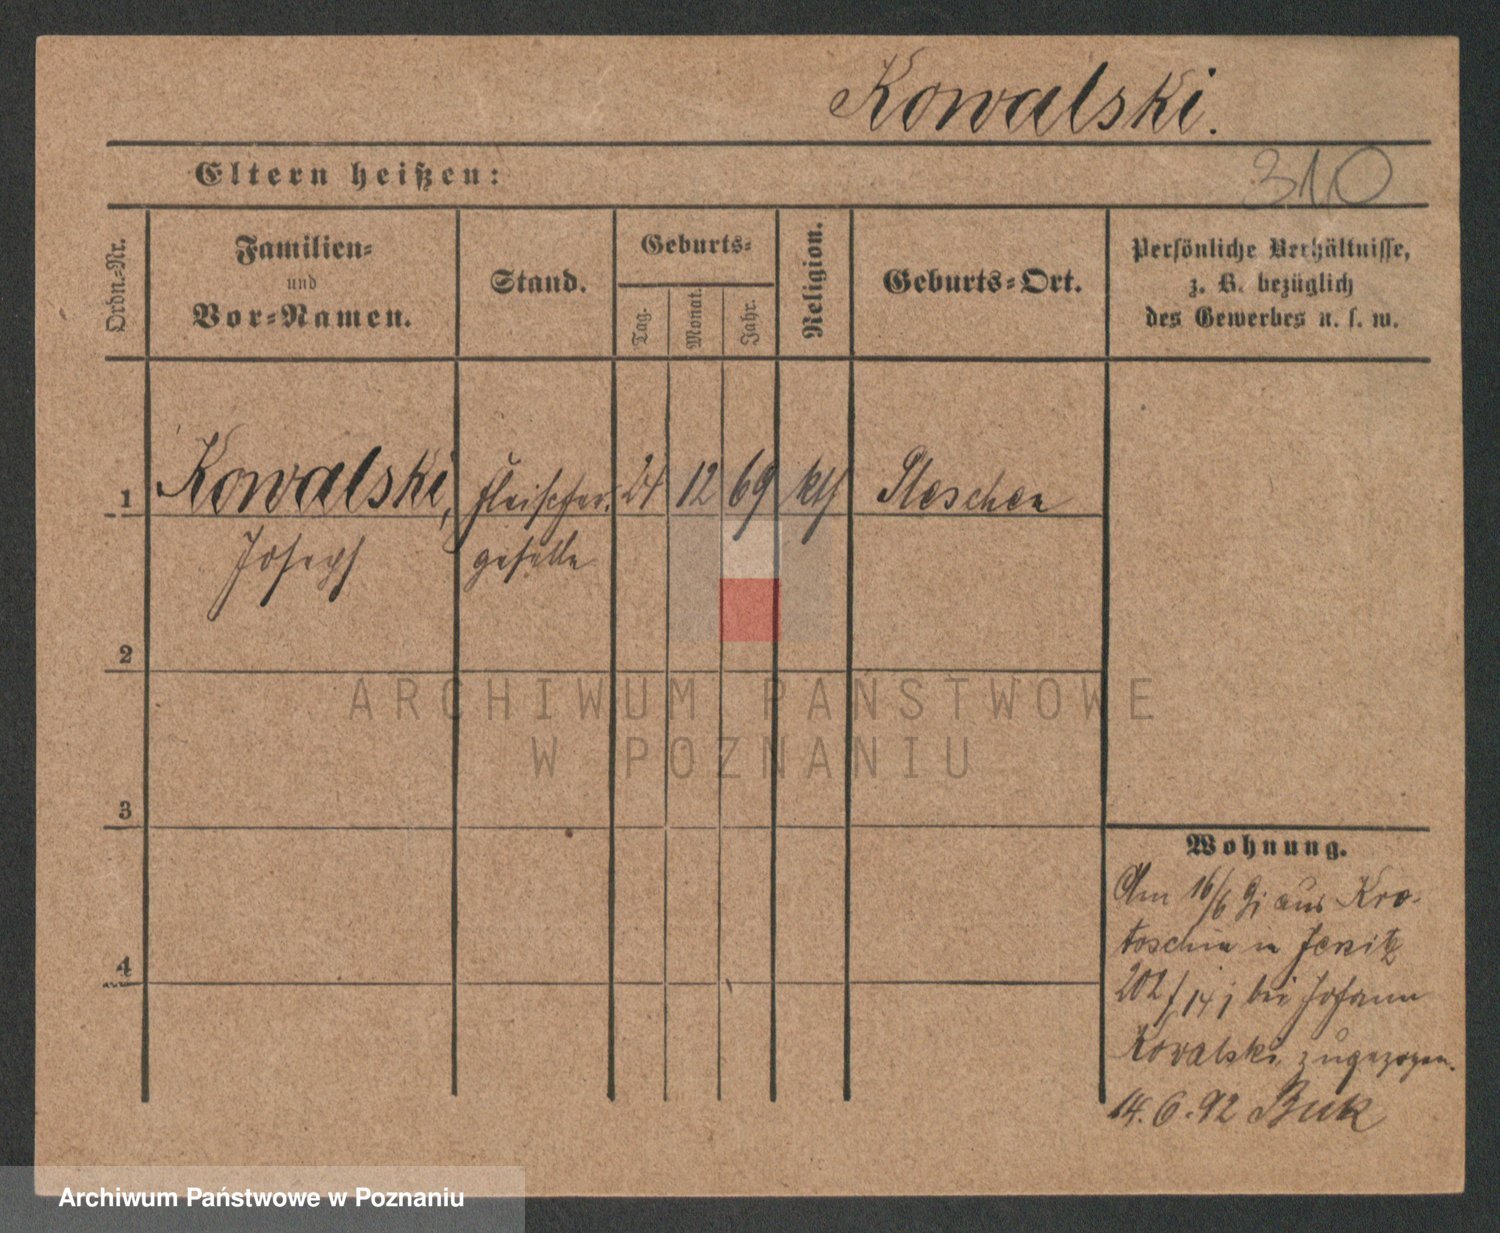 Kowalski.
Eltern heißen:
310
Ordn.-Nr.
Familien-
und
Vor-Namen.
Stand.
Geburts-
Tag.
Monat.
Jahr.
Religion.
Geburts-Ort.
Persönliche Verhältnisse,
z. B. bezüglich
des Gewerbes u. s. w.
1 Kowalski, Fleischer- 24 12 69 kth Pleschen
Joseph geselle
2
3
4
Wohnung.
Am 16/6 91 aus Kro-
toschin in Jersitz
202/14 j bei Johann
Kowalski zugezogen.
14.6.92 Buk
ARCHIWUM PAŃSTWOWE
W POZNANIU
Archiwum Państwowe w Poznaniu